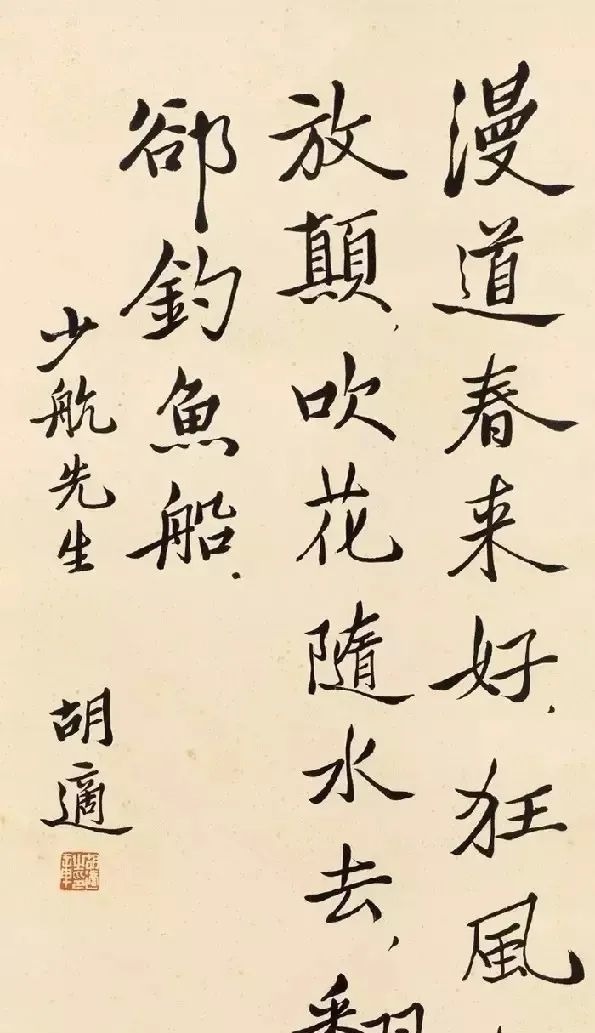 漫道春来好，狂風
放顛，吹花隨水去，翻
卻釣魚船．
少航先生
胡適